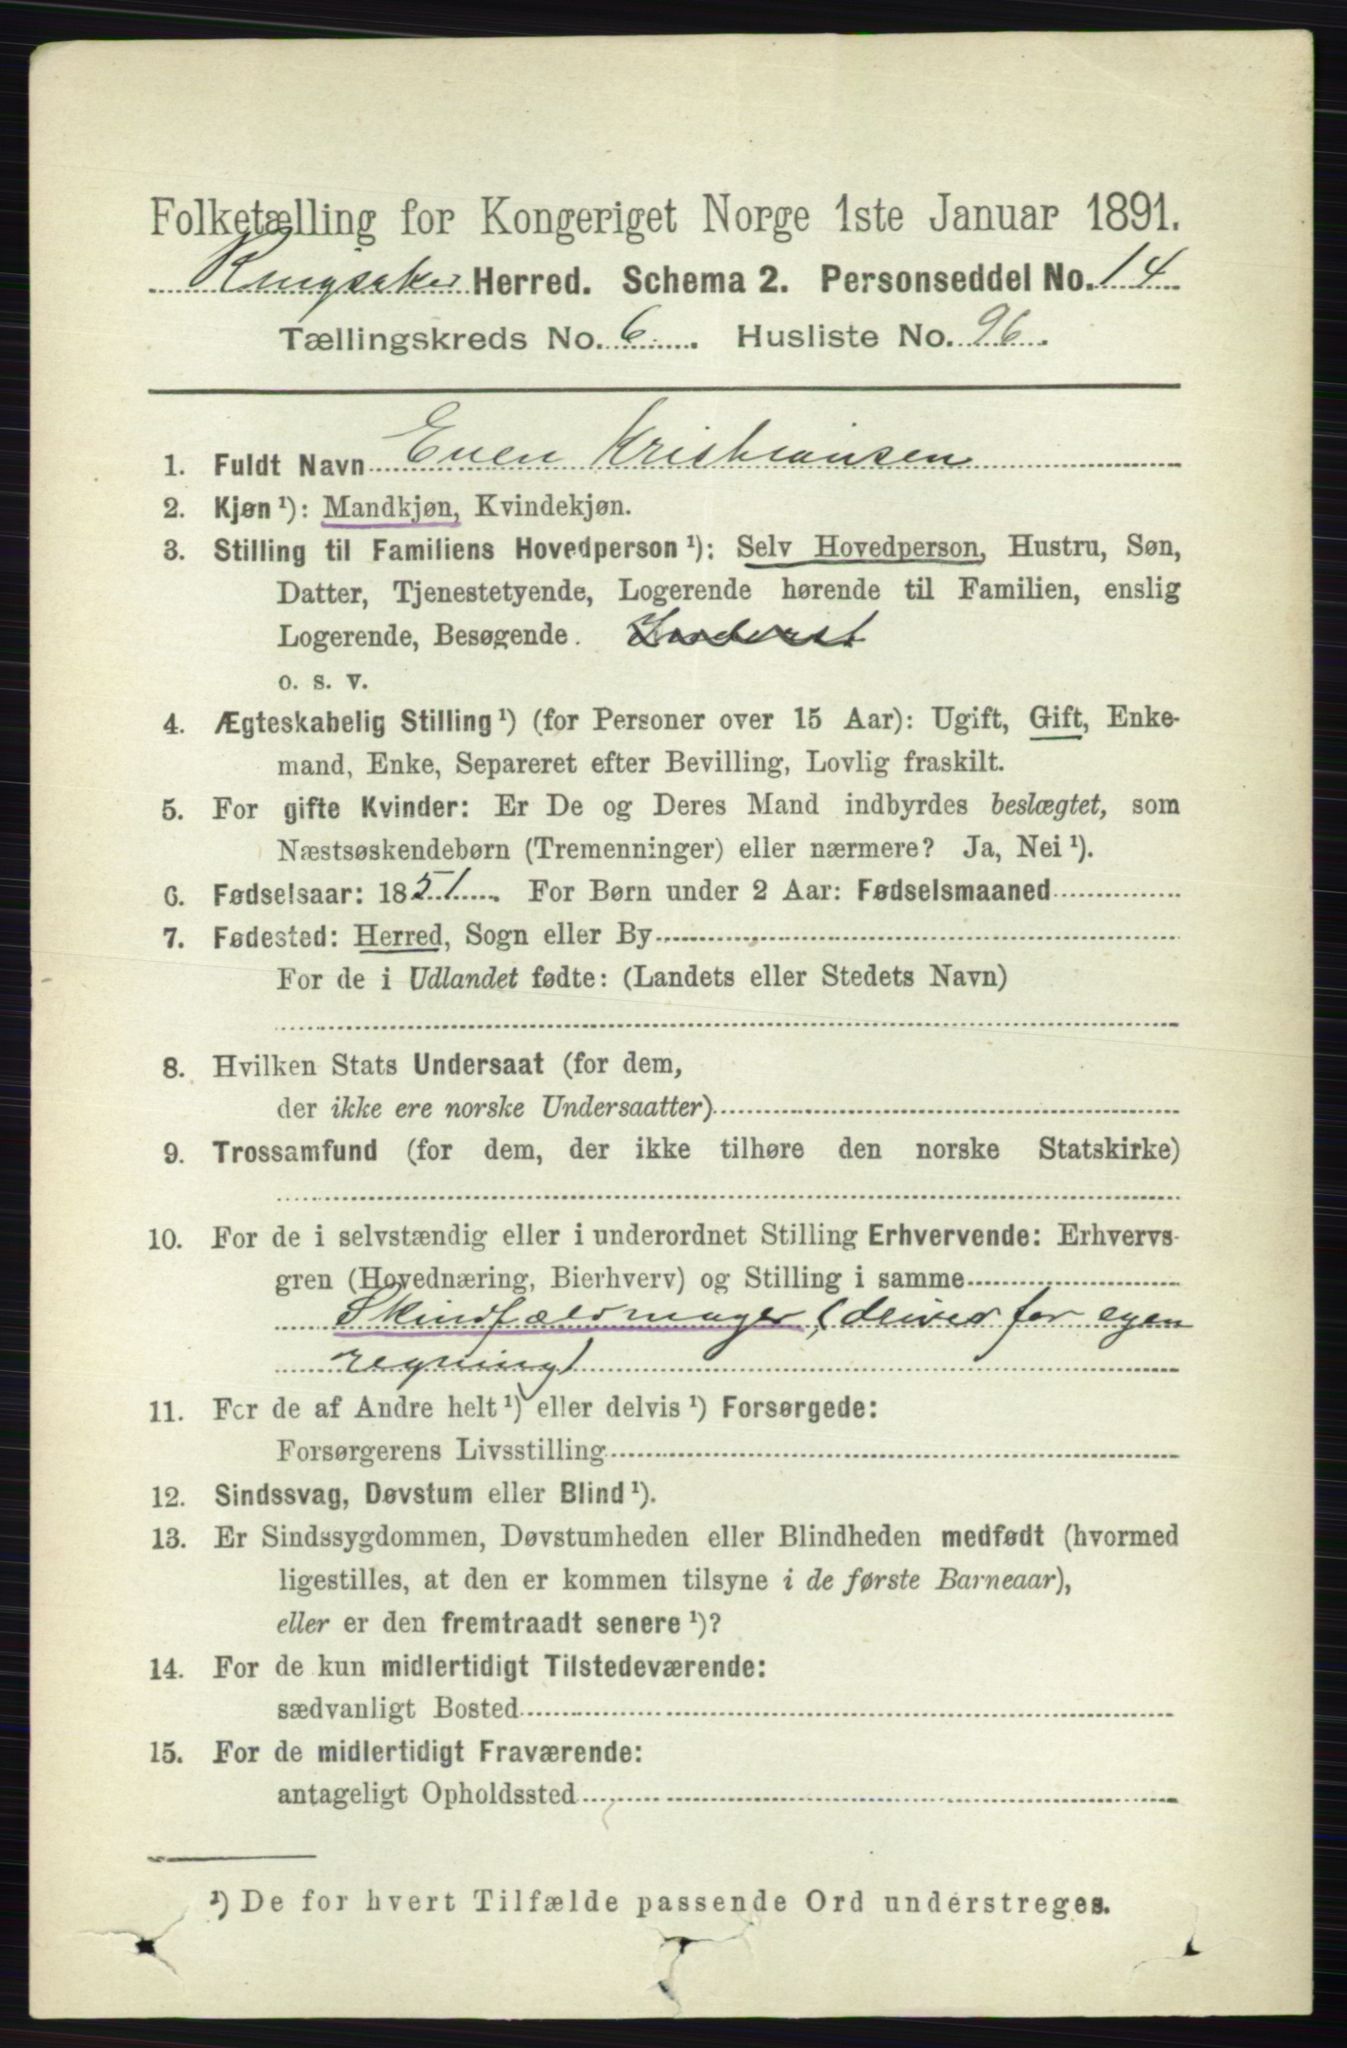 Folketælling for Kongeriget Norge 1ste Januar 1891.
Ringsaker Herred. Schema 2. Personseddel No. 14
Tællingskreds No. 6. Husliste No. 96.
1. Fuldt Navn Even Kristiansen
2. Kjøn ¹): Mandkjøn, Kvindekjøn.
3. Stilling til Familiens Hovedperson ¹): Selv Hovedperson, Hustru, Søn,
Datter, Tjenestetyende, Logerende hørende til Familien, enslig
Logerende, Besøgende. Inderst
o. s. v.
4. Ægteskabelig Stilling ¹) (for Personer over 15 Aar): Ugift, Gift, Enke-
mand, Enke, Separeret efter Bevilling, Lovlig fraskilt.
5. For gifte Kvinder: Er De og Deres Mand indbyrdes beslægtet, som
Næstsøskendebørn (Tremenninger) eller nærmere? Ja, Nei ¹).
6. Fødselsaar: 1851. For Børn under 2 Aar: Fødselsmaaned
7. Fødested: Herred, Sogn eller By
For de i Udlandet fødte: (Landets eller Stedets Navn)
8. Hvilken Stats Undersaat (for dem,
der ikke ere norske Undersaatter)
9. Trossamfund (for dem, der ikke tilhøre den norske Statskirke)
10. For de i selvstændig eller i underordnet Stilling Erhvervende: Erhvervs-
gren (Hovednæring, Bierhverv) og Stilling i samme
Skindfældmager, (driver for egen
regning)
11. For de af Andre helt ¹) eller delvis ¹) Forsørgede:
Forsørgerens Livsstilling
12. Sindssvag, Døvstum eller Blind ¹).
13. Er Sindssygdommen, Døvstumheden eller Blindheden medfødt (hvormed
ligestilles, at den er kommen tilsyne i de første Barneaar),
eller er den fremtraadt senere ¹)?
14. For de kun midlertidigt Tilstedeværende:
sædvanligt Bosted
15. For de midlertidigt Fraværende:
antageligt Opholdssted
¹) De for hvert Tilfælde passende Ord understreges.